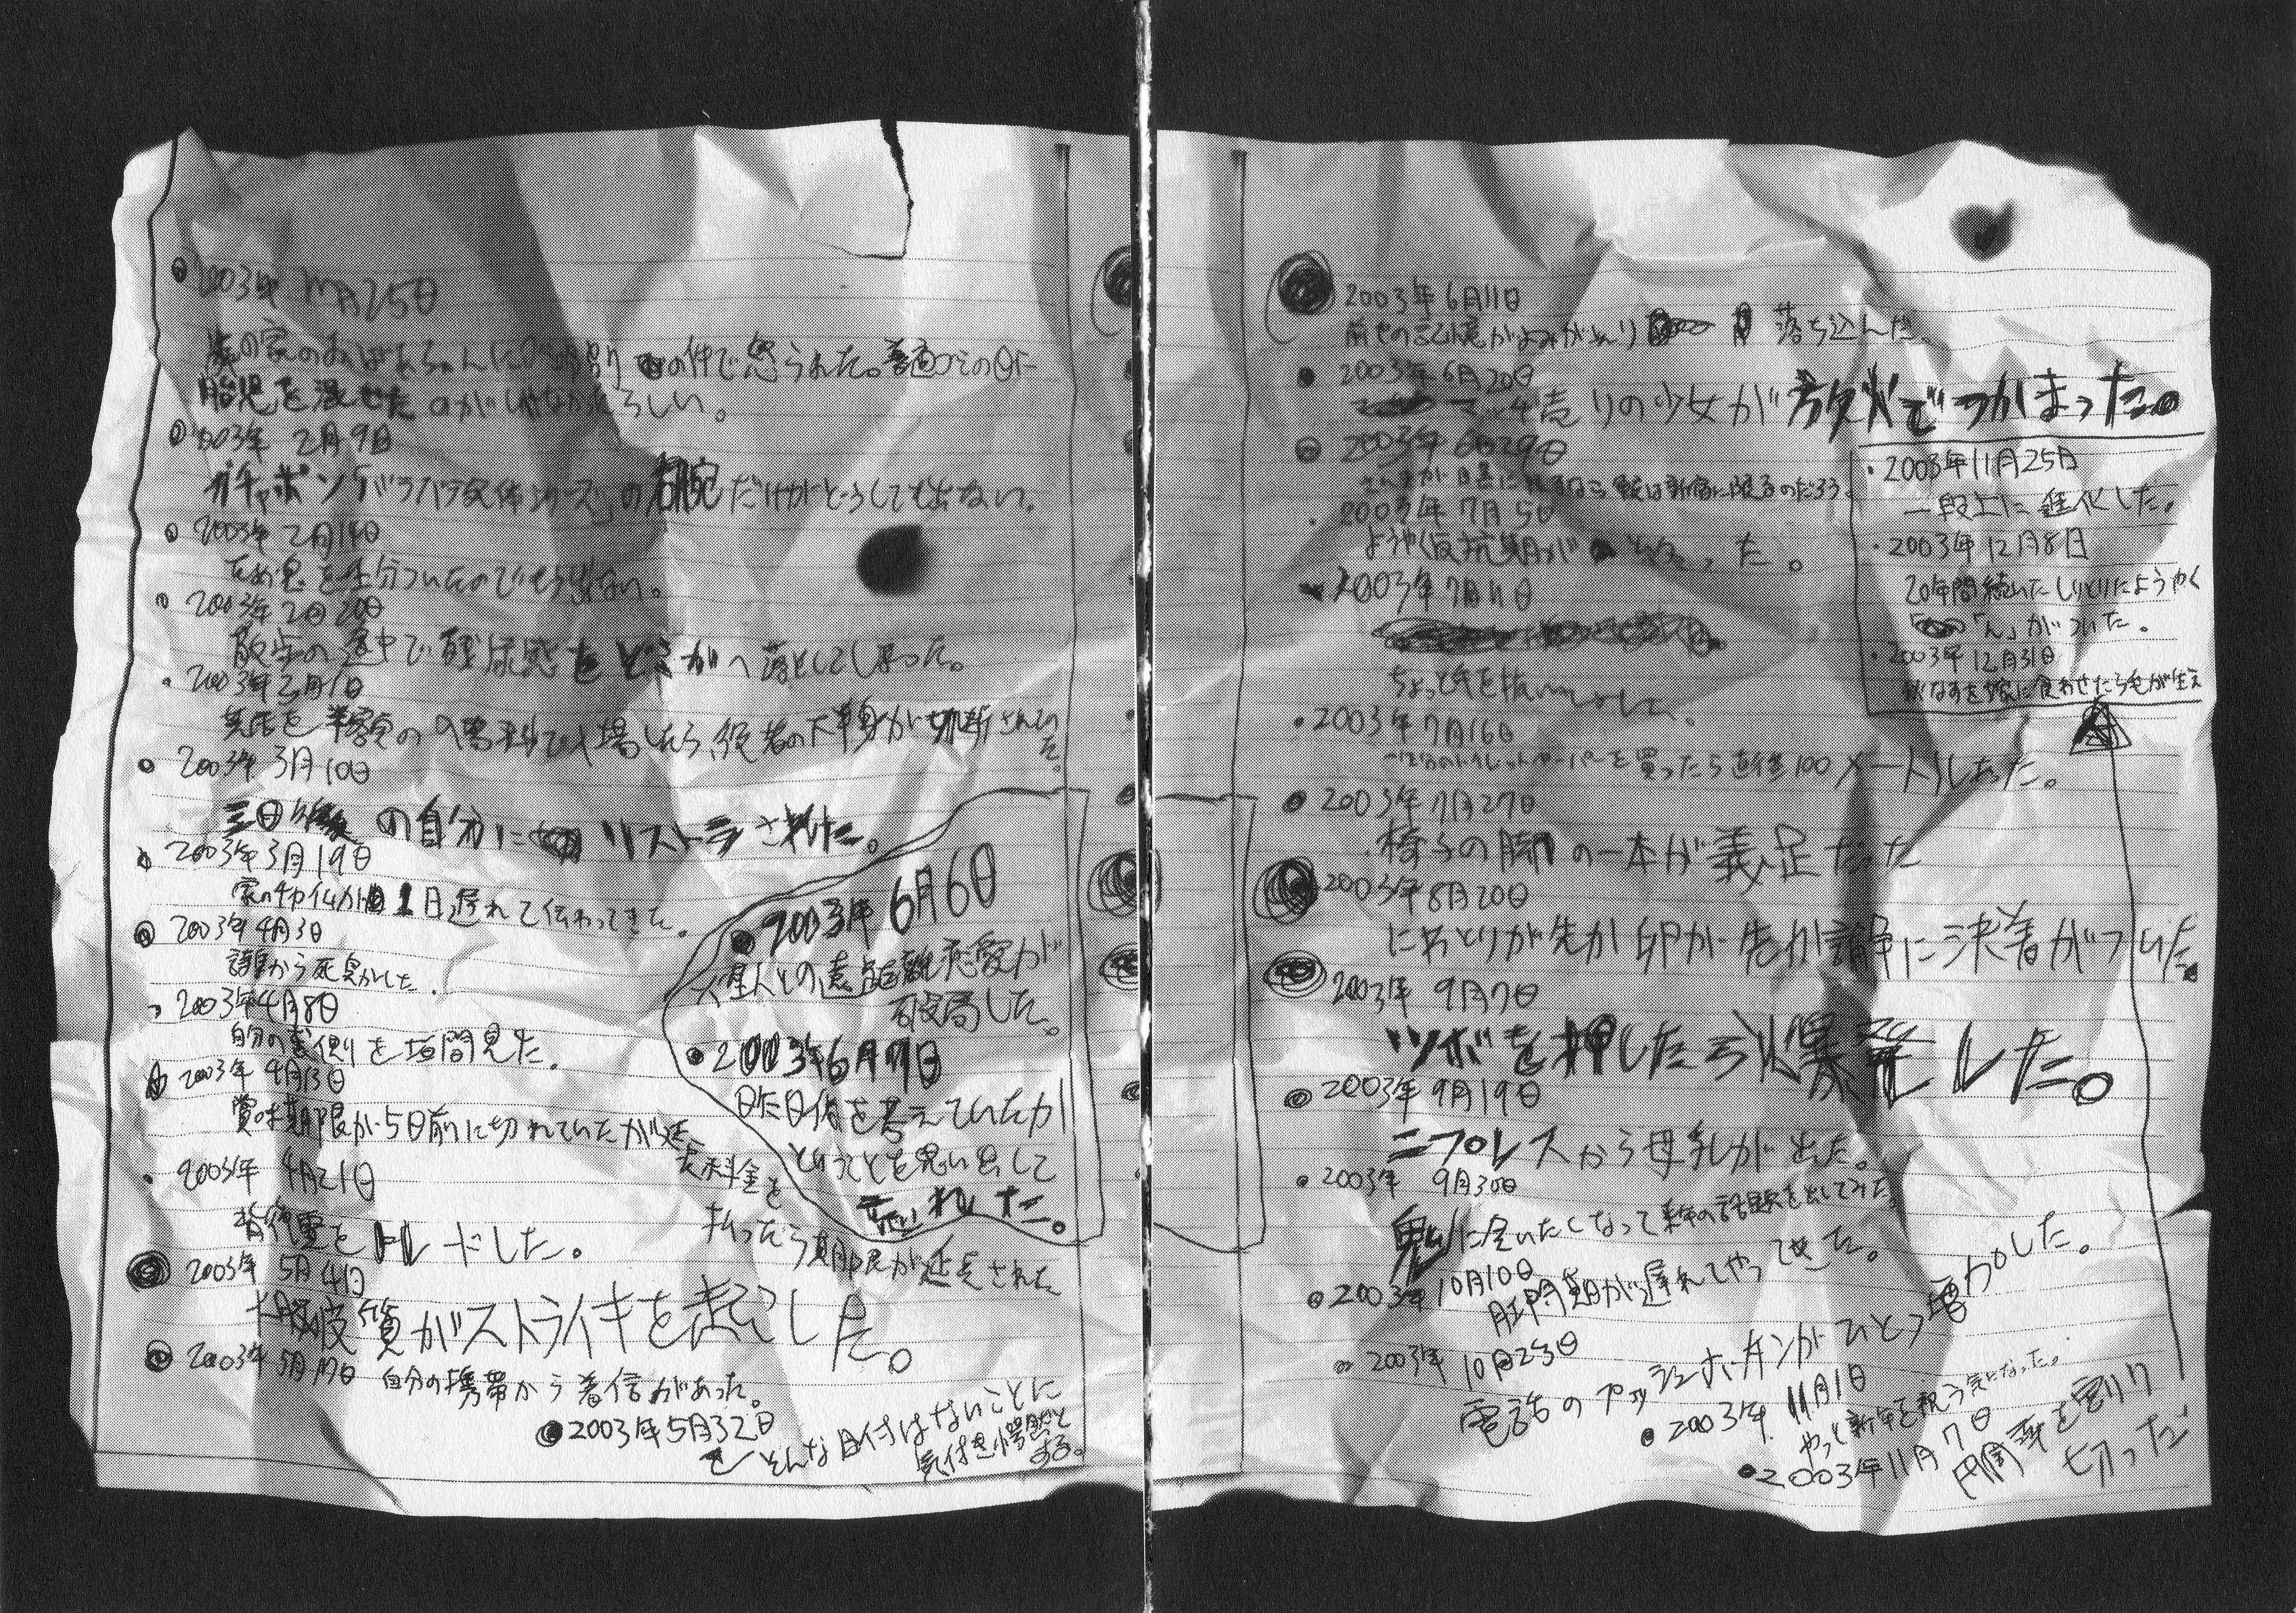 2003年 25日
の家のおばあちゃんにの件で怒られた。普通ゴミの日に
胎児を混ぜたのがいけなかったらしい。
2003年 2月9日
ガチャポン「バラバラ死体シリーズ」の右腕だけがどうしても出ない。
2003年2月14日
ため息を
2003年2月20日
散歩の途中で残尿感をどこかへ落としてしまった。
2003年3月1日
芝居を半額の入場料で入場したら、役者の下半身が切断されてい
た。
2003年3月10日
三日後の自分にリストラされた。
2003年3月19日
1日遅れて伝わってきた。
2003年4月3日
から死臭がした。
2003年4月8日
自分の裏側を垣間見た。
2003年4月13日
賞味期限が5日前に切れていたが延
長料金を
払ったら期限が延長された
2003年 4月21日
背後霊をトレードした。
2003年 5月4日
大脳皮質がストライキを起こした。
2003年5月17日 自分の携帯から着信があった。
2003年5月32日
そんな日付はないことに
気付き愕然と
する。
2003年6月6日
星人との遠距離恋愛が
破局した。
2003年6月7日
昨日俺を考えていたが
ということを思い出して
荒れた。
2003年6月11日
前世の記憶がよみがえり 落ち込んだ。
2003年6月20日
マッチ売りの少女が放火でつかまった。
2003年6月29日
さんまが目黒に限るなら
2003年7月5日
ようやく反抗期がった。
2003年7月11日
ちょっと
2003年7月16日
トイレットペーパーを買ったら直径100メートルあった。
2003年7月27日
椅子の脚の一本が義足だった
2003年8月20日
にわとりが先か卵が先か論争に決着がついた。
2003年 9月7日
ツボを押したら爆発した。
2003年9月19日
ニプレスから母乳が出た。
2003年 9月30日
鬼に会いたくなって来年の話題を出してみた。
2003年10月10日
肛門期が遅れてやって来た。
2003年 10月23日
電話のプッシュホンボタンがひとつ増加した。
2003年 11月1日
やっと新年を祝う気になった。
2003年11月7日
円周率を割り
切った
2003年11月25日
一段上に進化した。
2003年12月8日
20年間続いたしりとりにようやく
「ん」がついた。
2003年12月31日
秋なすを嫁に食わせたら毛が生え